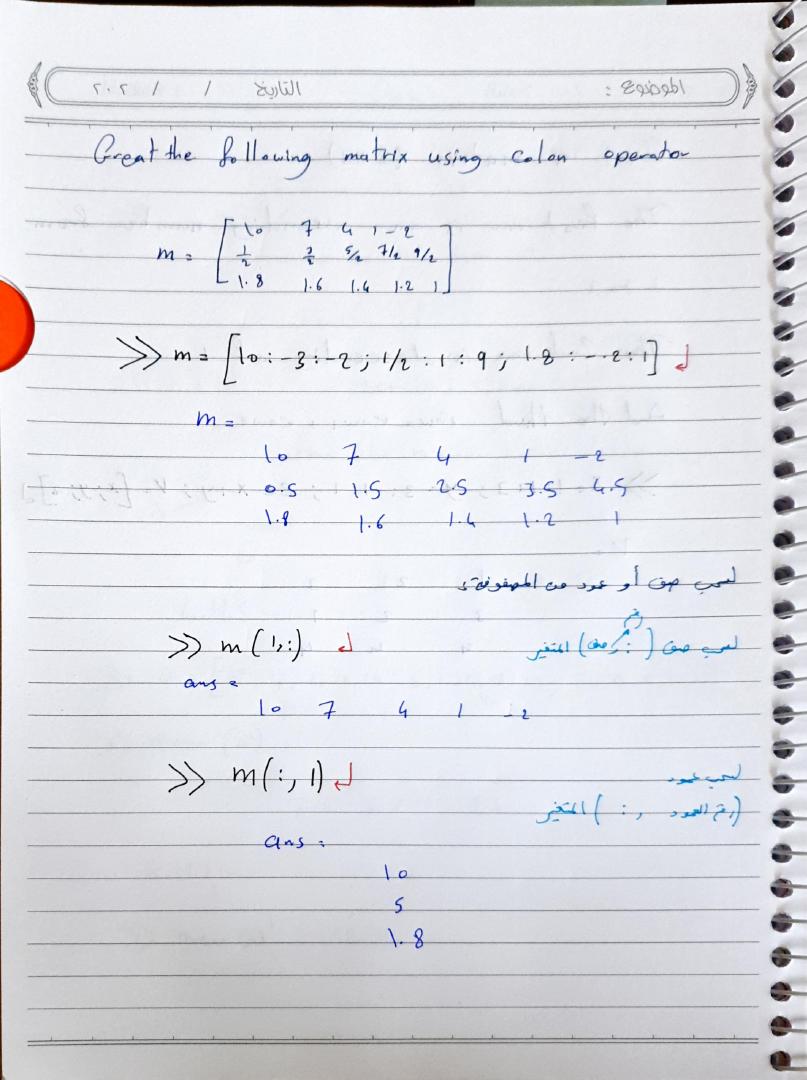 الموضوع : التاريخ / / ٢٠٢
Great the following matrix using colon operator
m = [ 10 7 4 1 -2
1/2 3/2 5/2 7/2 9/2
1.8 1.6 1.4 1.2 1 ]
>> m = [10 : -3 : -2 ; 1/2 : 1 : 9 ; 1.8 : -.2 : 1] ↲
m =
10 7 4 1 -2
0.5 1.5 2.5 3.5 4.5
1.8 1.6 1.4 1.2 1
لسحب صف أو عمود من المصفوفة :
رقم
لسحب صف ( : , صف) المتغير
>> m (1,:) ↲
ans =
10 7 4 1 -2
لسحب عمود
>> m(:, 1) ↲
(رقم العمود , : ) المتغير
ans =
10
5
1.8